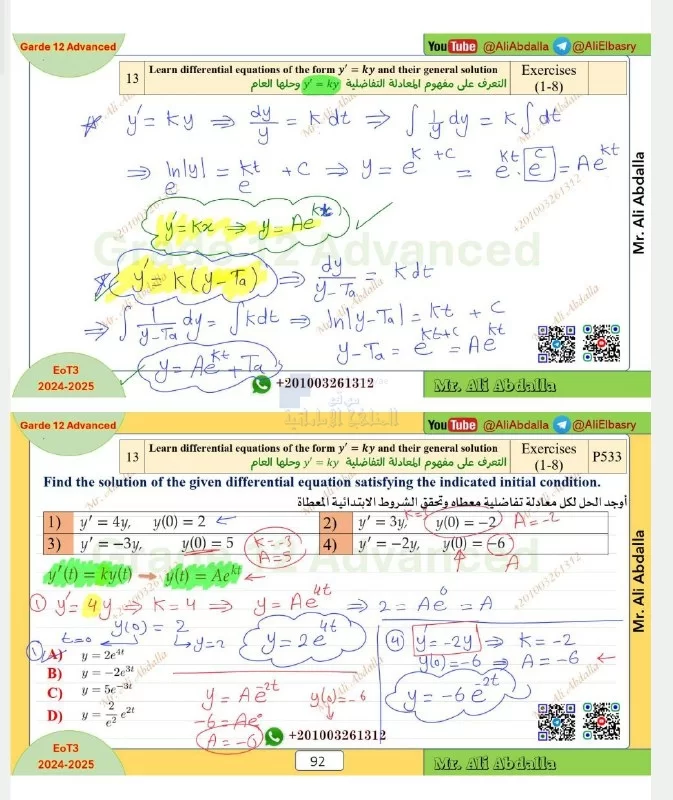 Garde 12 Advanced
You Tube @AliAbdalla @AliElbasry
13 Learn differential equations of the form y' = ky and their general solution Exercises (1-8)
التعرف على مفهوم المعادلة التفاضلية y' = ky وحلها العام
y' = ky ⇒ dy/y = k dt ⇒ ∫ 1/y dy = k ∫ dt
⇒ ln|y| = kt + C ⇒ y = e^(k+c) = e^(kt) · e^c = A e^(kt)
y' = kx ⇒ y = A e^(kt)
y' = k(y - Ta) ⇒ dy/(y - Ta) = k dt
⇒ ∫ 1/(y - Ta) dy = ∫ k dt ⇒ ln|y - Ta| = kt + C
y - Ta = e^(kt+c) = A e^(kt)
y = A e^(kt) + Ta
Grade 12 Advanced
Mr. Ali Abdalla
EoT3
2024-2025
+201003261312
Mr. Ali Abdalla
موقع
المناهج الإماراتية
Garde 12 Advanced
You Tube @AliAbdalla @AliElbasry
13 Learn differential equations of the form y' = ky and their general solution Exercises (1-8) P533
التعرف على مفهوم المعادلة التفاضلية y' = ky وحلها العام
Find the solution of the given differential equation satisfying the indicated initial condition.
أوجد الحل لكل معادلة تفاضلية معطاه وتحقق الشروط الابتدائية المعطاة
1) y' = 4y, y(0) = 2
2) y' = 3y, y(0) = −2 K=3 A = -2
3) y' = −3y, y(0) = 5 K = -3 A = 5
4) y' = −2y, y(0) = −6 A
y'(t) = ky(t) → y(t) = Ae^(kt)
① y' = 4y ⇒ K = 4 ⇒ y = Ae^(4t) ⇒ 2 = Ae^0 = A
y(0) = 2
t=0 y=2
y = 2e^(4t)
④ y' = -2y ⇒ K = -2
y(0) = -6 ⇒ A = -6
y = -6 e^(-2t)
A) y = 2e^(4t)
B) y = −2e^(3t)
C) y = 5e^(−3t)
D) y = 2/e² e^(2t)
y = Ae^(-2t) y(0) = -6
-6 = Ae^0
A = -6
+201003261312
Mr. Ali Abdalla
EoT3
2024-2025
92
Mr. Ali Abdalla